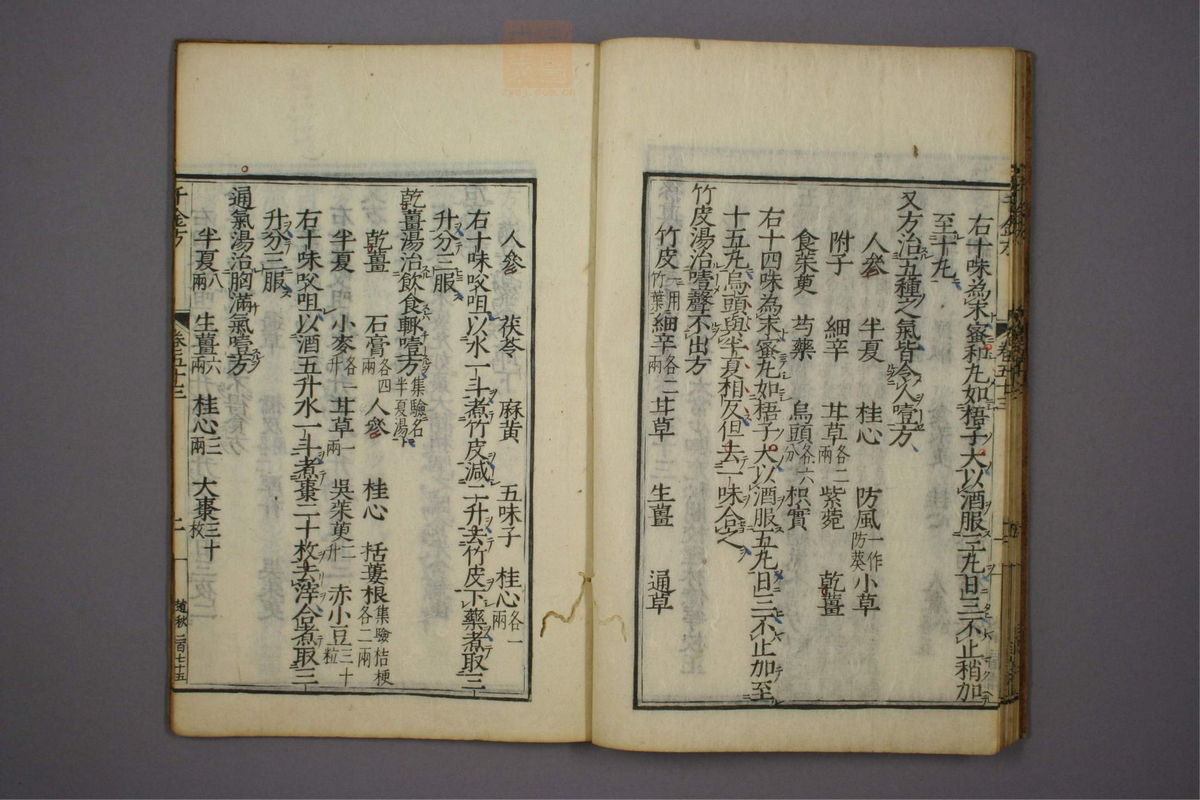 右十味為末蜜和丸如梧子大以酒服三丸日三不止稍加
至十丸
又方治五種之氣皆令人噎方
人參 半夏 桂心 防風一作防葵 小草
附子 細辛 甘草各二兩 紫菀 乾薑
食茱萸 芍藥 烏頭各六分 枳實
右十四味為末蜜丸如梧子大以酒服五丸日三不止加至
十五丸烏頭與半夏相反但去一味合之
竹皮湯治噎聲不出方
竹皮一用竹葉 細辛各二兩 甘草 生薑 通草
人參 茯苓 麻黃 五味子 桂心各一兩
右十味㕮咀以水一斗煮竹皮減二升去竹皮下藥煮取三
升分三服
乾薑湯治飲食輒噎方集驗名半夏湯
乾薑 石膏各四兩 人參 桂心 括蔞根集驗桔梗各二兩
半夏 小麥各一升 甘草一兩 吳茱萸二升 赤小豆三十粒
右十味㕮咀以酒五升水一斗煮棗二十枚去滓合煮取三
升分三服
通氣湯治胸滿氣噎方
半夏八兩 生薑六兩 桂心三兩 大棗三十枚
千金方
二
趙秋 二百七十五